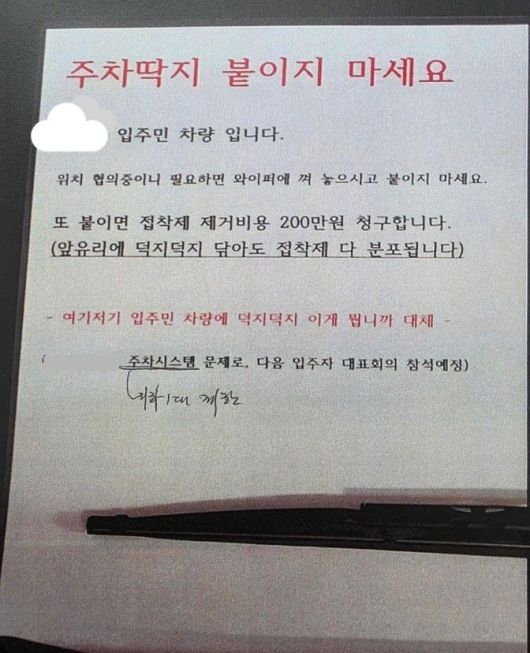 주차딱지 붙이지 마세요
입주민 차량 입니다.
위치 협의중이니 필요하면 와이퍼에 껴 놓으시고 붙이지 마세요.
또 붙이면 접착제 제거비용 200만원 청구합니다.
(앞유리에 덕지덕지 닦아도 접착제 다 분포됩니다)
- 여기저기 입주민 차량에 덕지덕지 이게 뭡니까 대체 -
( 주차시스템 문제로, 다음 입주자 대표회의 참석예정)
지하 1대 제한